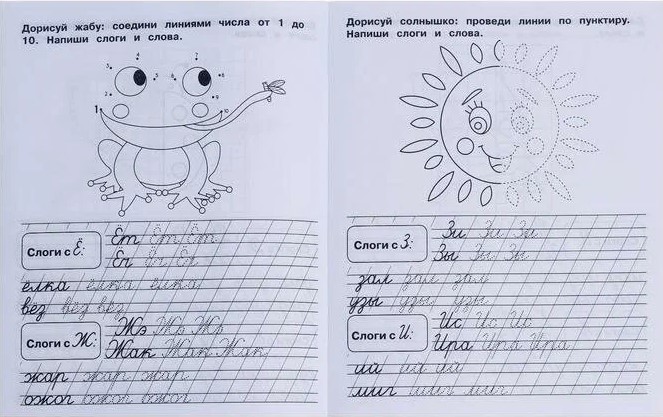 Дорисуй жабу: соедини линиями числа от 1 до
10. Напиши слоги и слова.
4 7
3 5 6 8
2 9
1 10
Слоги с Ё:
Ёт Ёт Ёт
Ёч Ёч Ёч
ёлка ёлка ёлка
вёз вёз вёз
Слоги с Ж:
Жэ Жэ Жэ
Жак Жак Жак
жар жар жар
ожог ожог ожог
Дорисуй солнышко: проведи линии по пунктиру.
Напиши слоги и слова.
Слоги с З:
Зи Зи Зи
Зы Зы Зы
зал зал зал
узы узы узы
Слоги с И:
Ис Ис Ис
Ира Ира Ира
ий ий ий
миг миг миг